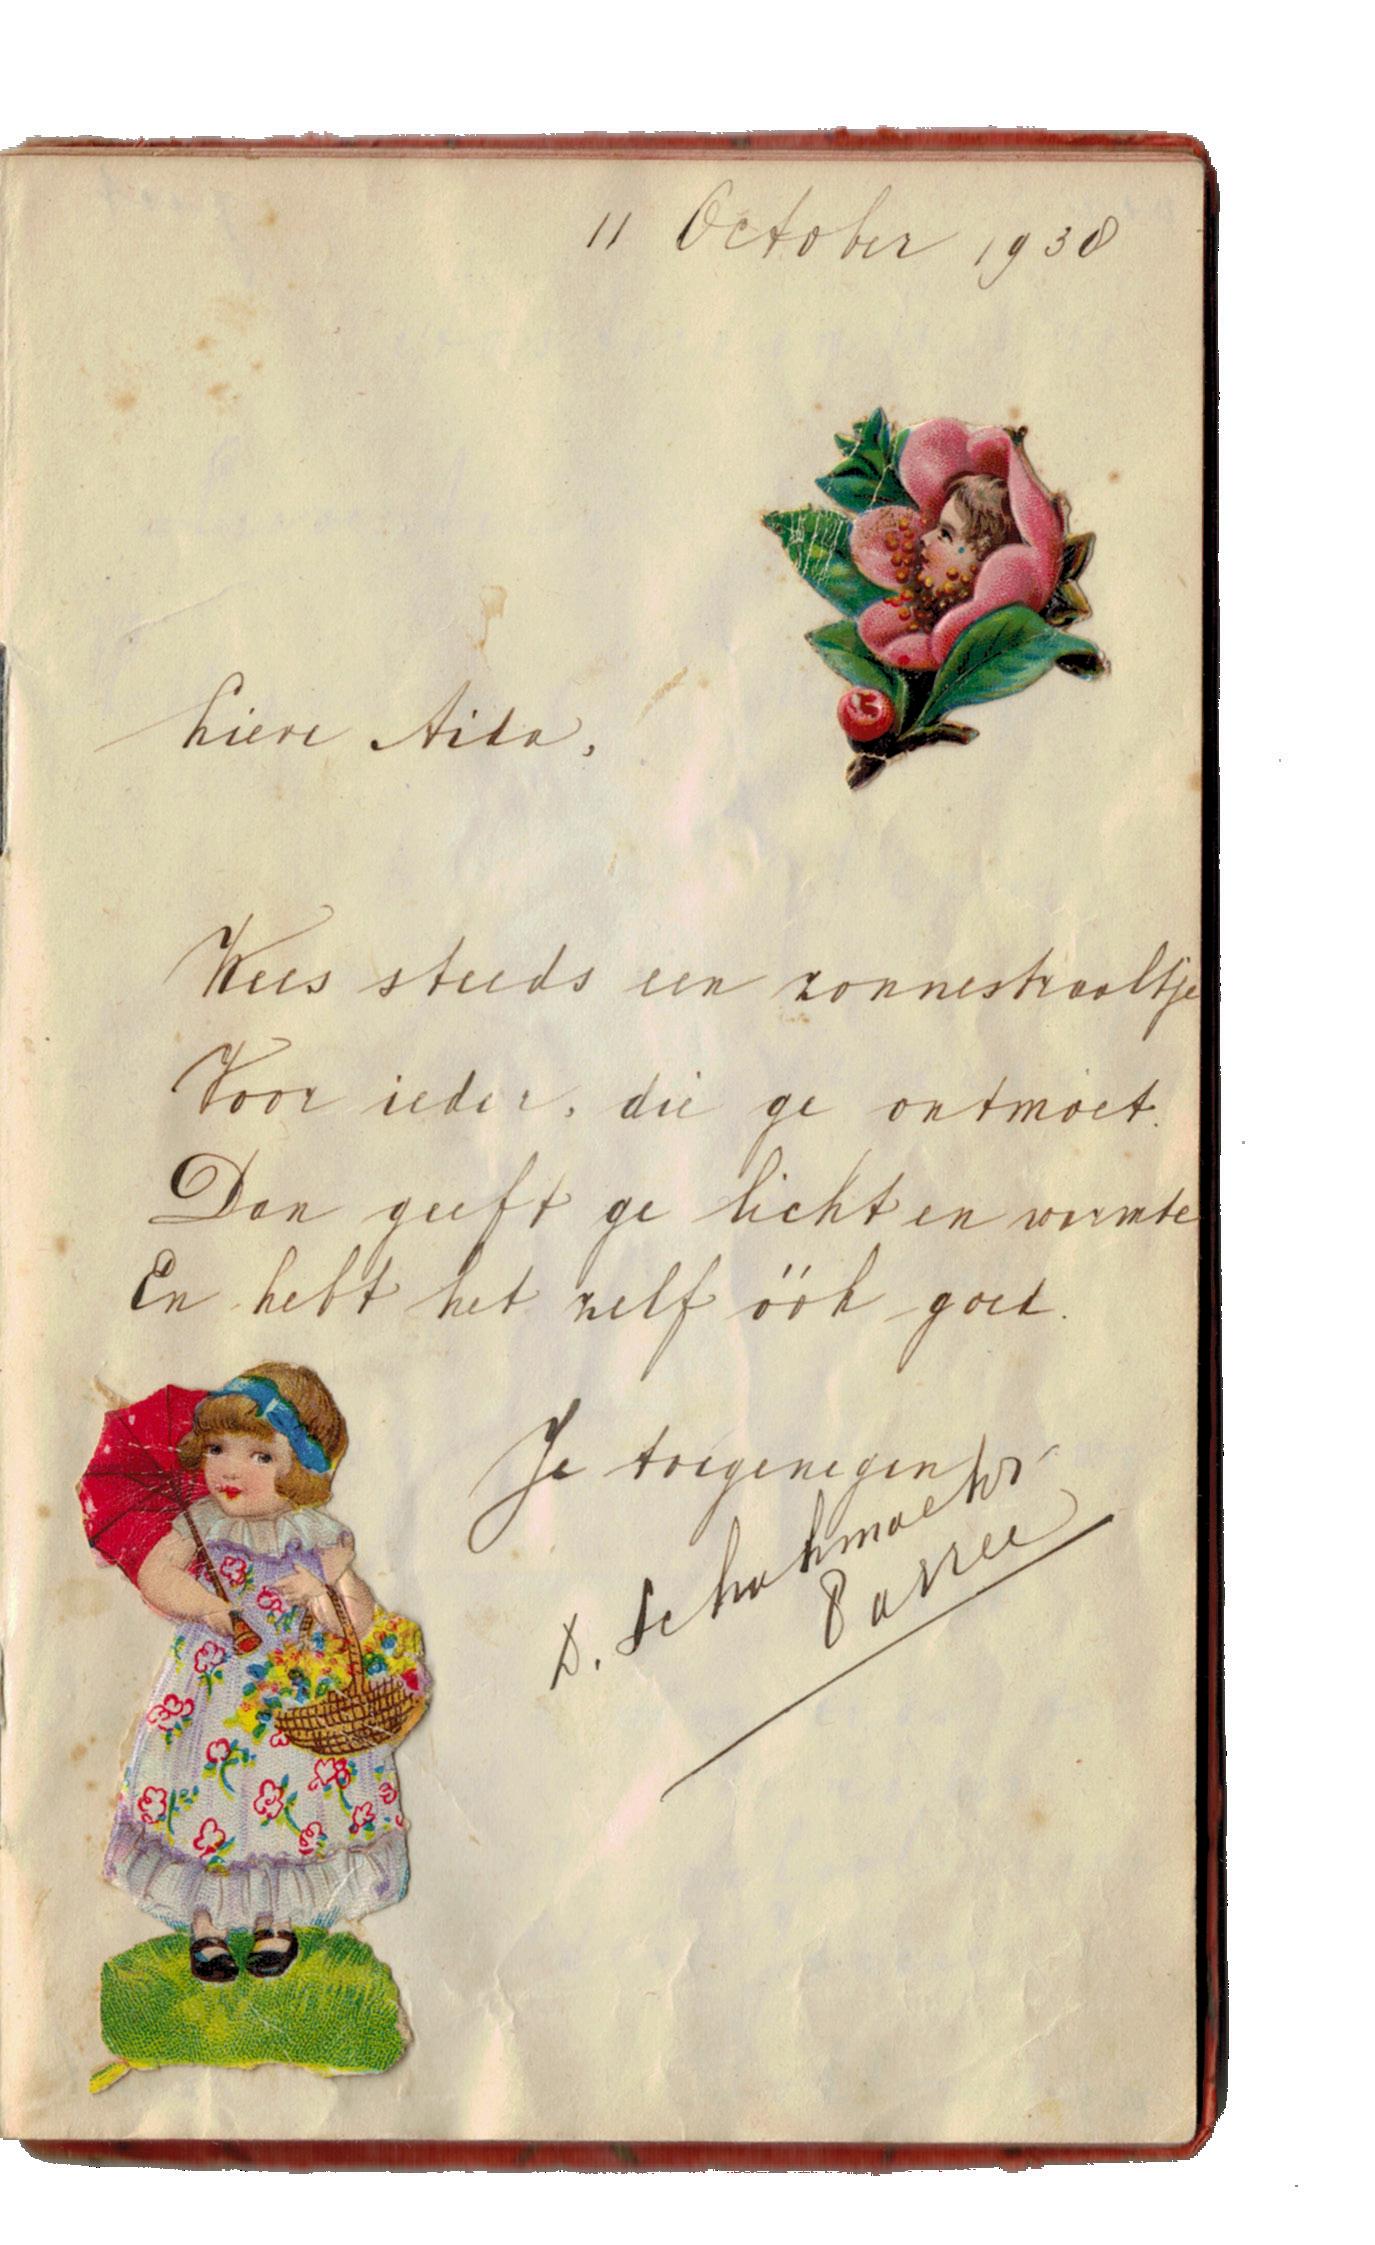 11 October 1938
Lieve Aida,
Wees steeds een zonnestraaltje
Voor ieder, die ge ontmoet.
Dan geeft ge licht en warmte
En hebt het zelf óók goed.
Je toegenegen
D.